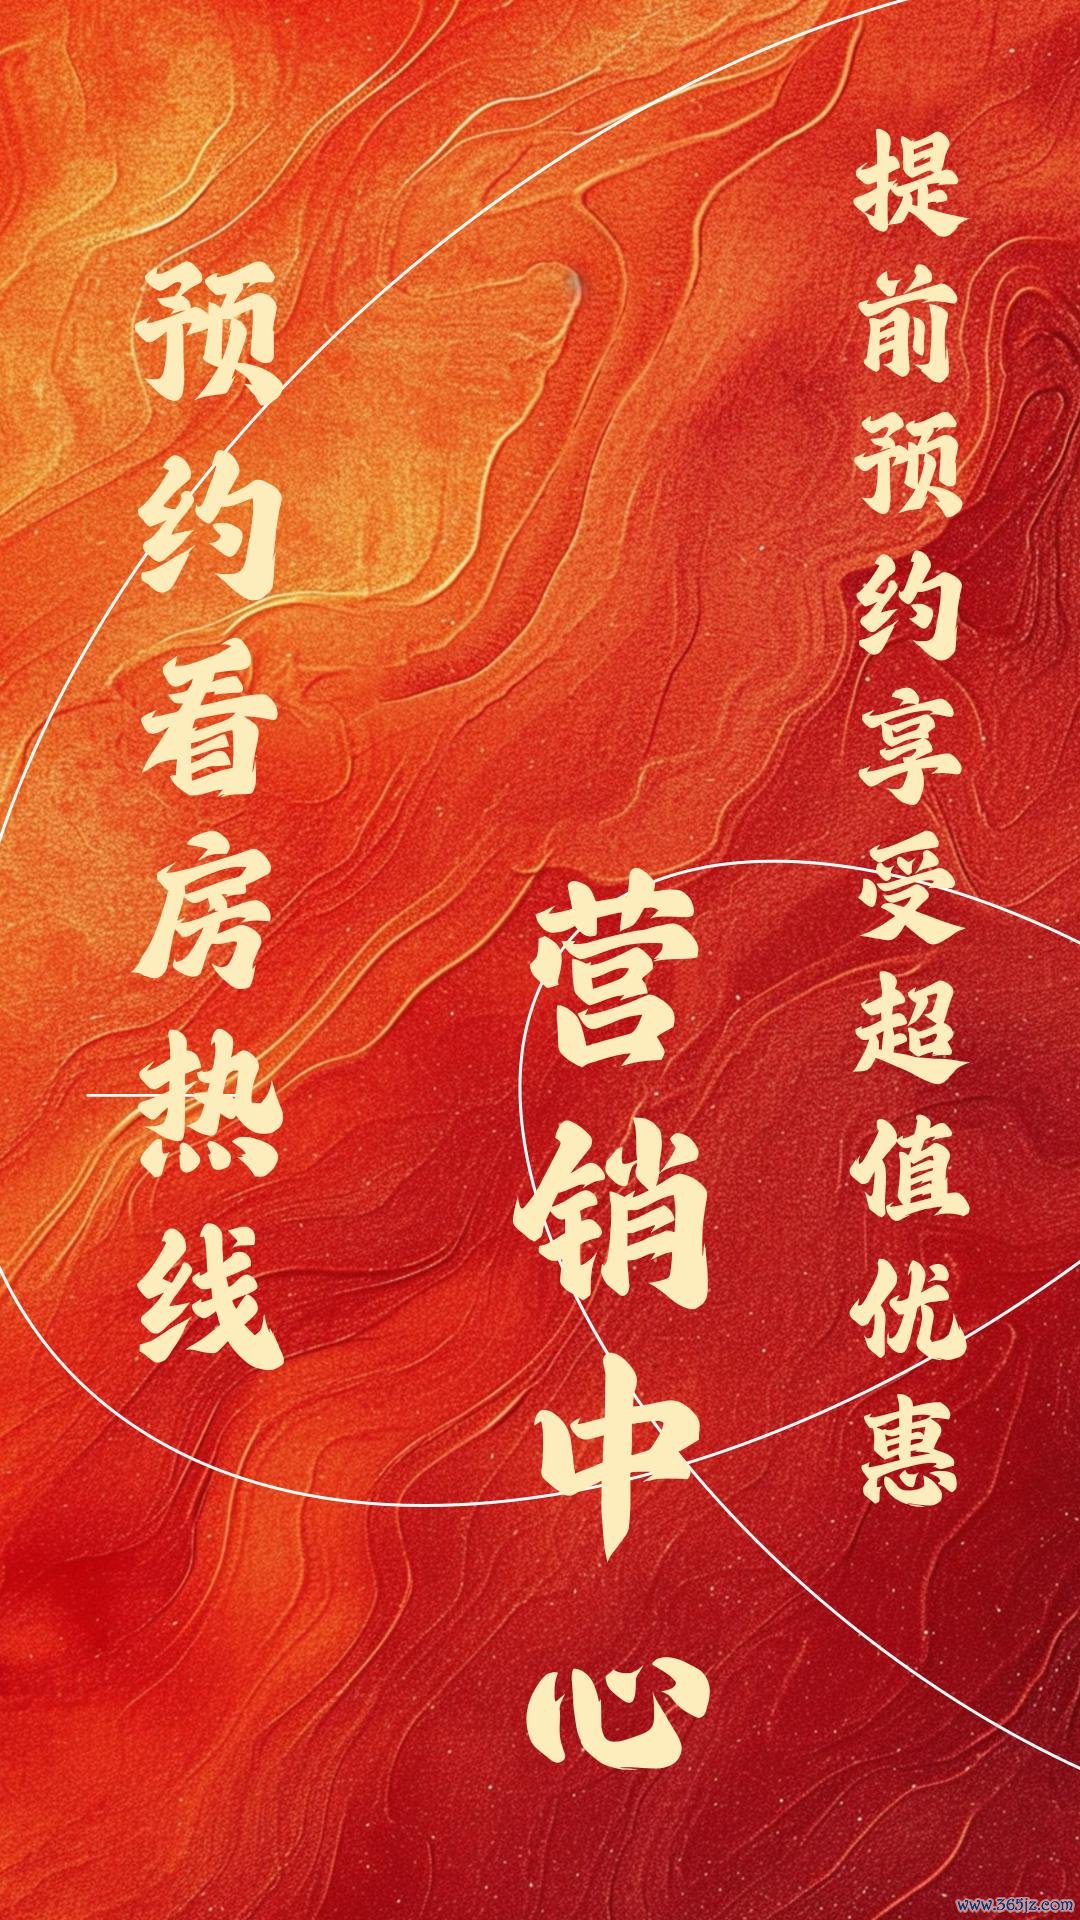 提前预约享受超值优惠
营销中心
预约看房热线
www.365jz.com